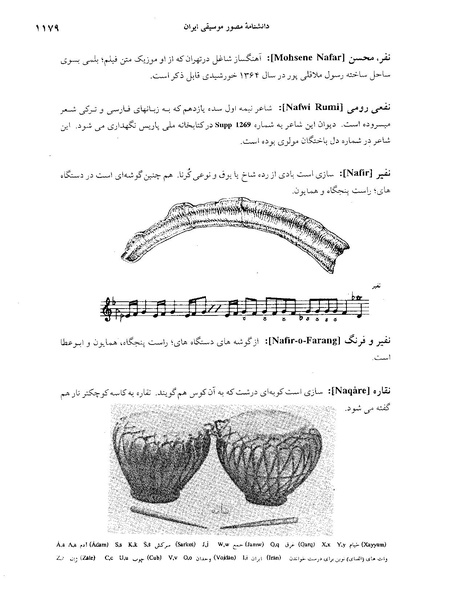 دانشنامهٔ مصور موسیقی ایران
۱۱۷۹
نفر، محسن [Mohsene Nafar]: آهنگساز شاغل درتهران که از او موزیک متن فیلم؛ بلمی بسوی
ساحل ساخته رسول ملاقلی پور در سال ۱۳۶۴ خورشیدی قابل ذکر است.
نفعی رومی [Nafwi Rumi]: شاعر نیمه اول سده یازدهم که به زبانهای فارسی و ترکی شعر
میسروده است. دیوان این شاعر به شماره Supp 1269 در کتابخانه ملی پاریس نگهداری می شود. این
شاعر در شماره دل باختگان مولوی بوده است.
نفیر [Nafir]: سازی است بادی از رده شاخ یا بوق و نوعی کُرنا. هم چنین گوشه‌ای است در دستگاه
های؛ راست پنجگاه و همایون.
نفیر
نفیر و فرنگ [Nafir-o-Farang]: از گوشه های دستگاه های؛ راست پنجگاه، همایون و ابوعطا
است.
نقاره [Naqâre]: سازی است کوبه‌ای درشت که به آن کوس هم گویند. نقاره به کاسه کوچکتر تار هم
گفته می شود.
A,a آدم (Âdam) S,s K,k Š,š سرکش (Sarkeš) J,j جمع (Jamw) W,w Q,q غرق (Qarq) X,x Y,y خیام (Xayyam)
وات های (الفبای) نوین برای درست خواندن ایران (Iran) I,i وجدان (Vojdan) V,v O,o چوب (Cub) U,u C,c ژاله (Žâle) Ž,ž